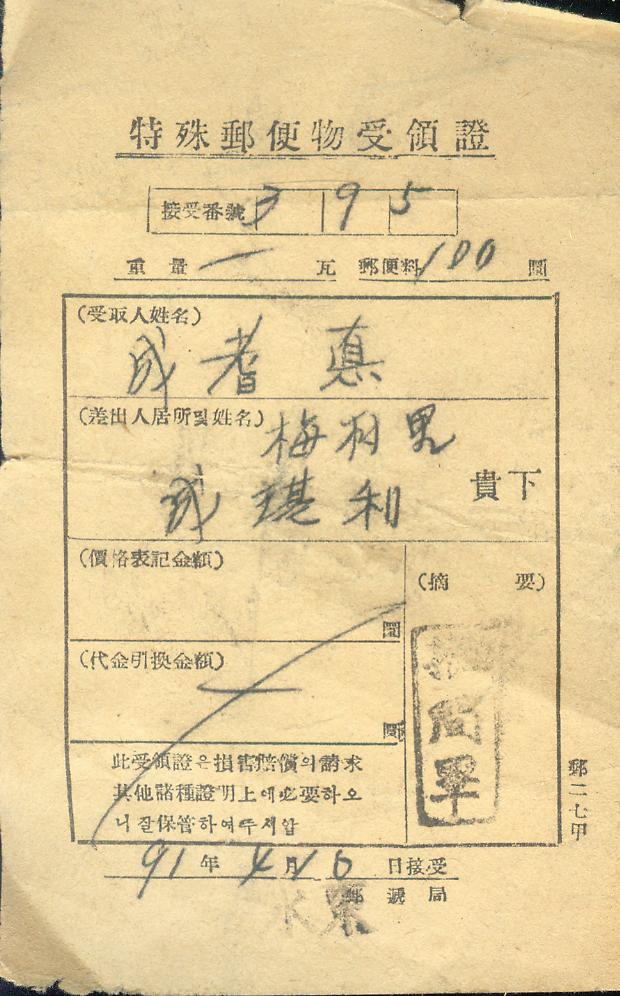 特殊郵便物受領證
接受番號 3 9 5
重量 一 瓦 郵便料 100 圜
(受取人姓名)
成耆悳
(差出人居所및姓名)
成琪利 貴下
(價格表記金額)
圜
(摘要)
(代金引換金額)
圜
此受領證은損害賠償의請求
其他諸種證明上에必要하오
니잘保管하여두시압
郵二七甲
91年 4月 10日接受
郵遞局